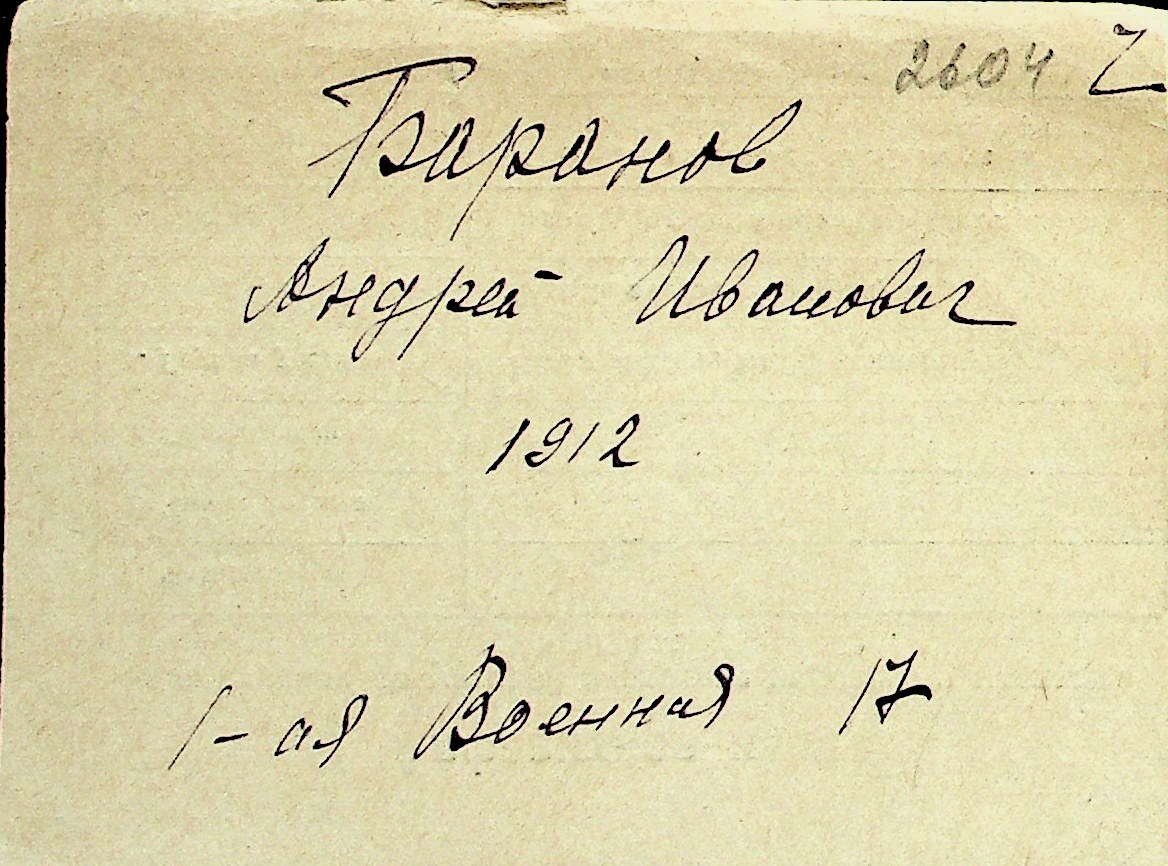 2604
Баранов
Андрей Иванович
1912
1-ая Военная 17